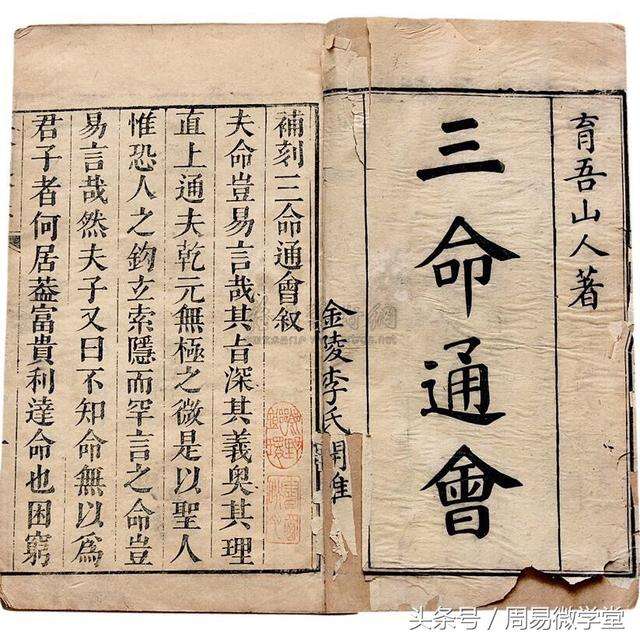 育吾山人著
三命通會
金陵李氏
補刻三命通會叙
夫命豈易言哉其㫖深其義奥其理
直上通夫乾元無極之微是以聖人
惟恐人之鈎玄索隱而罕言之命豈
易言哉然夫子又曰不知命無以爲
君子者何居葢富貴利達命也困窮
头条号 / 周易微学堂